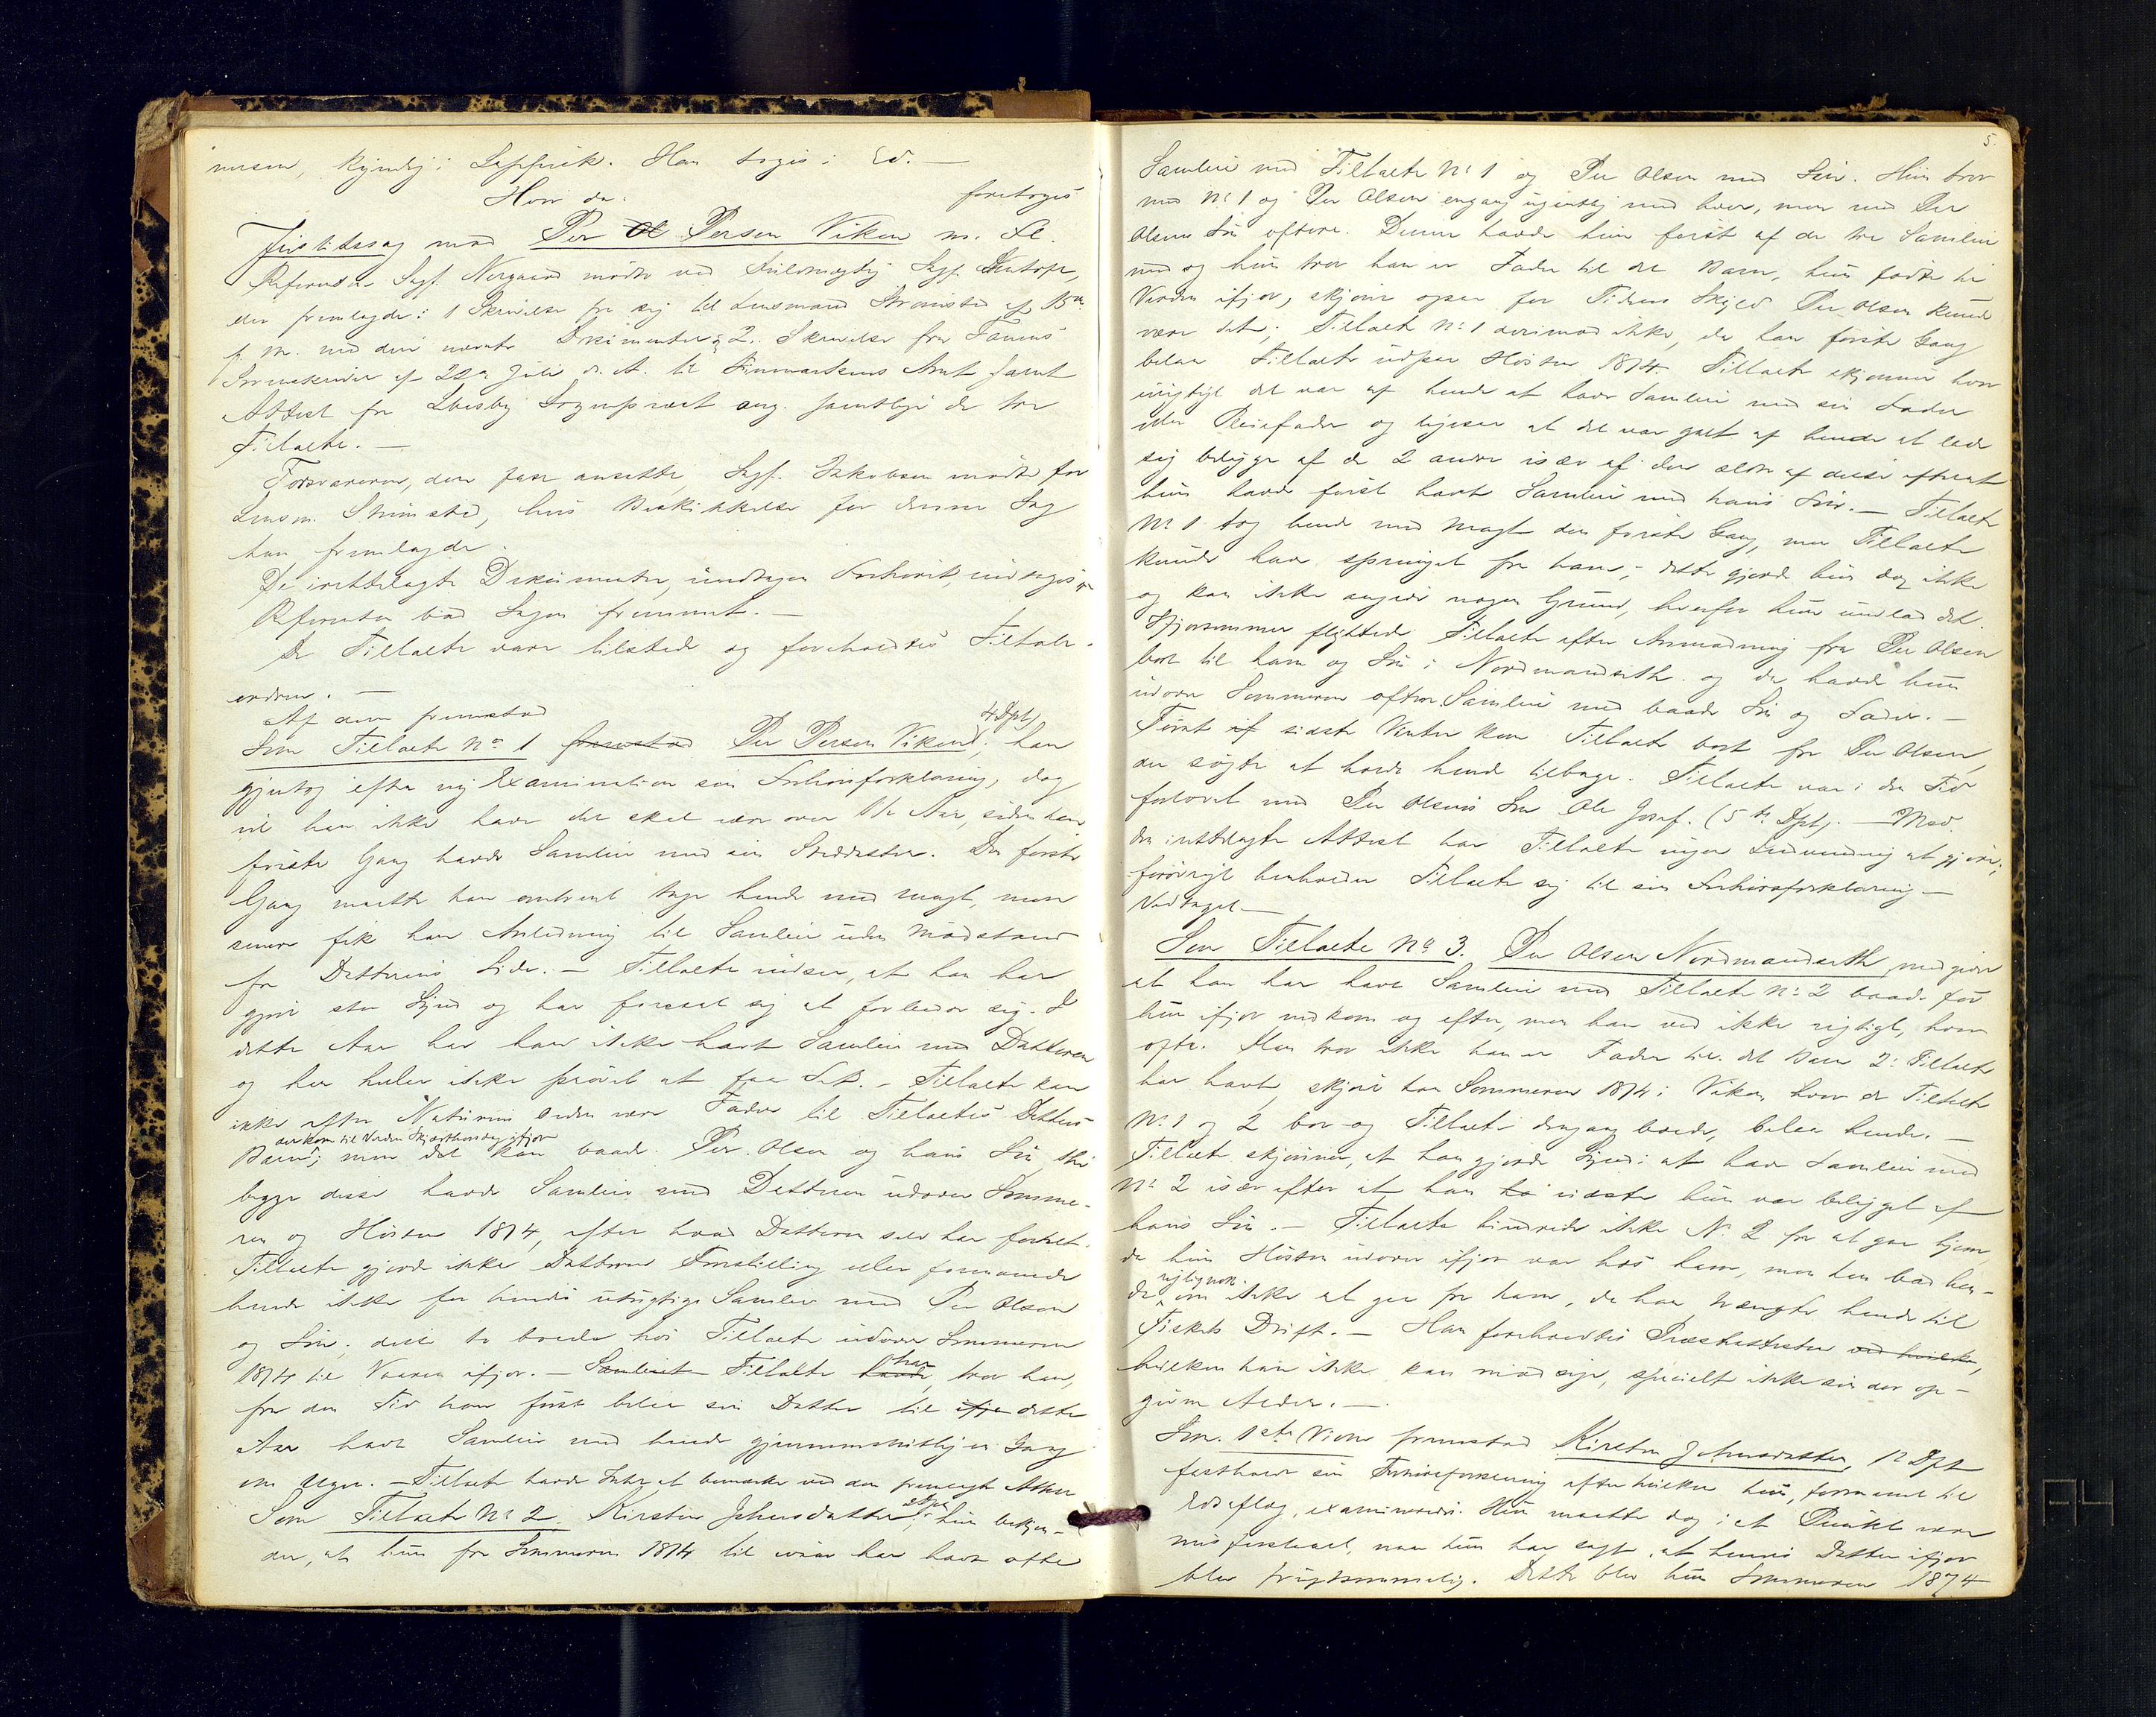 nusen, kyndig i Lappisk. Han toges i Ed. —
Hvor da: foretoges
Justitssag mod Per Ol Persen Viken m. Fl.
Referenten Sagf. Norgaard mødte ved Fuldmægtig Sagf.
der fremlagde: 1 Skrivelse fra sig til Lensmand af
f. M. med deri nævnte Dokumenter og 2. Skrivelse fra Tanens
Sorenskriver af 22de Juli d. A. til Finmarkens Amt samt
Attest fra Lebesby Sognepræst ang. samtlige de tre
Tiltalte. —
Forsvareren, den faste ansatte Sagf. Jakobsen mødte for
Lensm. hvis Beskikkelse for denne Sag
han fremlagde.
De irettelagte Dokumenter, undtagen Forhøret, indtages
Referenten bad Sagen fremmet. —
De Tiltalte vare tilstede og foreholdtes Tiltale-
ordren. —
Af dem fremstod
Som Tiltalte No 1 fremstod Per Persen Viken, 4 Dpt, han
gjentog efter ny Examination sin Forhørsforklaring, dog
vil han ikke have det skal være over 1½ Aar, siden han
første Gang havde Samleie med sin Steddatter. Den første
Gang maatte han omtrent tage hende med Magt, men
senere fik han Anledning til Samleie uden Modstand
fra Datterens Side. — Tiltalte indser, at han har
gjort stor Synd og har foresat sig at forbedre sig. I
dette Aar har han ikke havt Samleie med Datteren
og har heller ikke prøvet at faa Lst. — Tiltalte kan
ikke efter Naturens Orden være Fader til Tiltaltes Datters
der kom til Verden Skjærthorsdag ifjor
Barn; men det kan baade Per Olsen og hans Søn, thi
begge disse havde Samleie med Datteren udover Somme-
ren og Høsten 1874, efter hvad Datteren selv har fortalt.
Tiltalte gjorde ikke Datteren Forestilling eller formanede
hende ikke for hendes utugtige Samleie med Per Olsen
og Søn, disse to boede hos Tiltalte udover Sommeren
1874 til Vaaren ifjor. — Samleiet Tiltalte havde har, tror han,
fra den Tid han først belaa sin Datter til ifjor dette
Aar havt Samleie med hende gjennemsnitligen Gang
om Ugen. — Tiltalte havde Intet at bemærke ved den fremlagte Attest
Som Tiltalte No 2. Kirsten Johnsdatter, 2 Dpt, hun bekjen-
der, at hun fra Sommeren 1874 til ivaar har havt ofte
5.
Samleie med Tiltalte No 1 og Per Olsen med Søn. Hun tror
med No 1 og Per Olsen engang ugentlig med hver, men med Per
Olsens Søn oftere. Denne havde hun først af de tre Samleie
med og hun tror han er Fader til det Barn, hun fødte til
Verden ifjor, skjønt ogsaa for Tidens Skyld Per Olsen kunde
være det; Tiltalte No 1 derimod ikke, da han første Gang
belaa Tiltalte udpaa Høsten 1874. Tiltalte skjønner hvor
urigtigt det var af hende at have Samleie med sin Fader
eller Pleiefader og ligesaa at det var galt af hende at lade
sig beligge af de 2 andre især af den ældre af disse efterat
hun havde først havt Samleie med hans Søn. — Tiltalte
No 1 tog hende med Magt den første Gang, men Tiltalte
kunde have sprunget fra ham; dette gjorde hun dog ikke
og kan ikke angive nogen Grund, hvorfor hun undlod det.
Ifjorsommer flyttede Tiltalte efter Anmodning fra Per Olsen
bort til ham og Søn i Nordmandseth og da havde hun
udover Sommeren oftere Samleie med baade Søn og Fader. —
Først if sidste Vinter kom Tiltalte bort fra Per Olsen,
der søgte at holde hende tilbage. Tiltalte var i den Tid
forlovet med Per Olsens Søn Ole Josef. (5te Dpt). — Mod
den irettelagte Attest har Tiltalte ingen Indvending at gjøre;
forøvrigt henholder Tiltalte sig til sin Forhørsforklaring —
Vedtaget —
Som Tiltalte No 3. Per Olsen Nordmandseth medgiver
at han har havt Samleie med Tiltalte No 2 baade før
hun ifjor nedkom og efter, men han ved ikke rigtigt, hvor
ofte. Han tror ikke han er Fader til det Barn 2: Tiltalte
har havt, skjønt han Sommeren 1874 i Viken, hvor de Tiltalte
No 1 og 2 bor og Tiltalte dengang boede, belaa hende. —
Tiltalte skjønner, at han gjorde Synd i at have Samleie med
No 2 især efter at han to vidste hun var beligget af
hans Søn. — Tiltalte hindrede ikke No 2 fra at gaa hjem
da hun Høsten udover ifjor var hos ham, men han bad hen-
de rigtignok om ikke at gaa fra ham, da han trængte hende til
Fiskets Drift. — Han foreholdtes Præsteattesten ved hvilken,
hvilken han ikke kan modsige, specielt ikke sin der op-
givne Alder. —
Som 1ste Vidne fremstod Kirsten Johnsdatter, 12 Dpt
fastholdt sin Forhørsforklaring efter hvilken hun, formanet til
Edsaflæg, examineredes. Hun maatte dog i et Punkt være
misforstaaet, naar hun har sagt, at hendes Datter ifjor
blev frugtsommelig. Dette blev hun Sommeren 1874